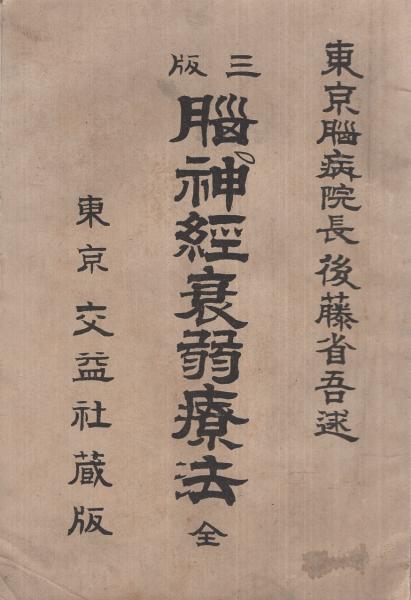 東京腦病院長後藤省吾述
三版
腦神經衰弱療法 全
東京交益社蔵版